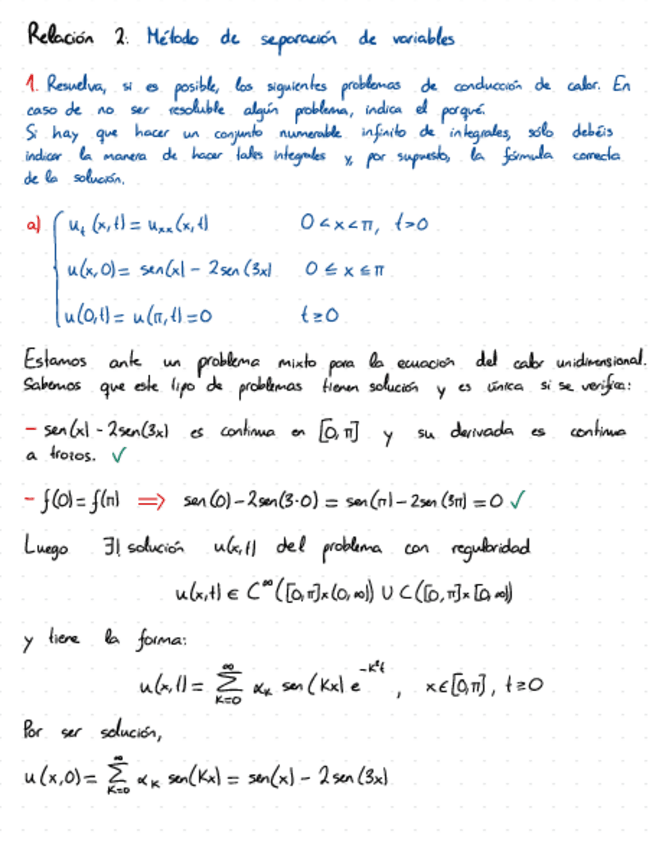 Relación 2: Método de separación de variables
1. Resuelva, si es posible, los siguientes problemas de conducción de calor. En
caso de no ser resoluble algún problema, indica el porqué.
Si hay que hacer un conjunto numerable infinito de integrales, sólo debéis
indicar la manera de hacer tales integrales y, por supuesto, la fórmula correcta
de la solución.
a) { u_t (x,t) = u_xx (x,t)   0 < x < π, t > 0
u(x,0) = sen(x) - 2sen(3x)   0 ≤ x ≤ π
u(0,t) = u(π,t) = 0   t ≥ 0
Estamos ante un problema mixto para la ecuación del calor unidimensional.
Sabemos que este tipo de problemas tienen solución y es única si se verifica:
- sen(x) - 2sen(3x) es continua en [0,π] y su derivada es continua
a trozos. ✓
- f(0) = f(π) ⟹ sen(0) - 2sen(3·0) = sen(π) - 2sen(3π) = 0 ✓
Luego ∃! solución u(x,t) del problema con regularidad
u(x,t) ∈ C^∞([0,π]×(0,∞)) ∪ C([0,π]×[0,∞))
y tiene la forma:
u(x,t) = ∑_{K=0}^{∞} α_K sen(Kx) e^{-K²t}, x ∈ [0,π], t ≥ 0
Por ser solución,
u(x,0) = ∑_{K=0}^{∞} α_K sen(Kx) = sen(x) - 2sen(3x)